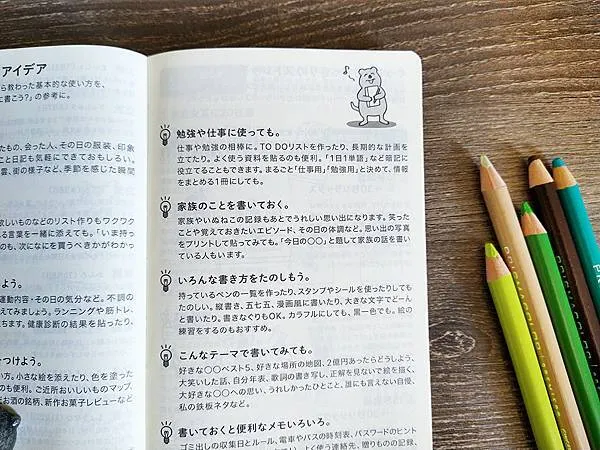 アイデア
ら教わった基本的な使い方を、
に書こう?」の参考に。
たもの、会った人、その日の服装、印象
こと日記も気軽にできておもしろい。
雲、街の様子など、季節を感じた瞬間
欲しいものなどのリスト作りもワクワク
れる言葉を一緒に添えても。「いま持っ
のも、次になにを買うべきかがわかっ
よう。
運動内容・その日の気分など。不調の
えてみましょう。ランニングや筋トレ、
ちます。健康診断の結果を貼ったり、
つけよう。
い方。小さな絵を添えたり、色を塗った
のも便利。ご近所おいしいものマップ、
お酒の銘柄、新作お菓子レビューなど
勉強や仕事に使っても。
仕事や勉強の相棒に。TO DOリストを作ったり、長期的な計画を
立てたり。よく使う資料を貼るのも便利。「1日1単語」など暗記に
役立てることもできます。まるごと「仕事用」「勉強用」と決めて、情報
をまとめる1冊にしても。
家族のことを書いておく。
家族やいぬねこの記録もあとでうれしい思い出になります。笑った
ことや覚えておきたいエピソード、その日の体調など。思い出の写真
をプリントして貼ってみても。「今日の○○」と題して家族の話を書い
ている人もいます。
いろんな書き方をたのしもう。
持っているペンの一覧を作ったり、スタンプやシールを使ったりしても
たのしい。縦書き、五七五、漫画風に書いたり、大きな文字でどーん
と書いたり。書きなぐりもOK。カラフルにしても、黒一色でも。絵の
練習をするのもおすすめ。
こんなテーマで書いてみても。
好きな○○ベスト5、好きな場所の地図、2億円あったらどうしよう、
大笑いした話、自分年表、歌詞の書き写し、正解を見ないで絵を描く、
大好きな○○への思い、うれしかったひとこと、誰にも言えない自慢、
私の鉄板ネタなど。
書いておくと便利なメモいろいろ。
ゴミ出しの収集日とルール、電車やバスの時刻表、パスワードのヒント
よく使う連絡先、贈りものの記録、